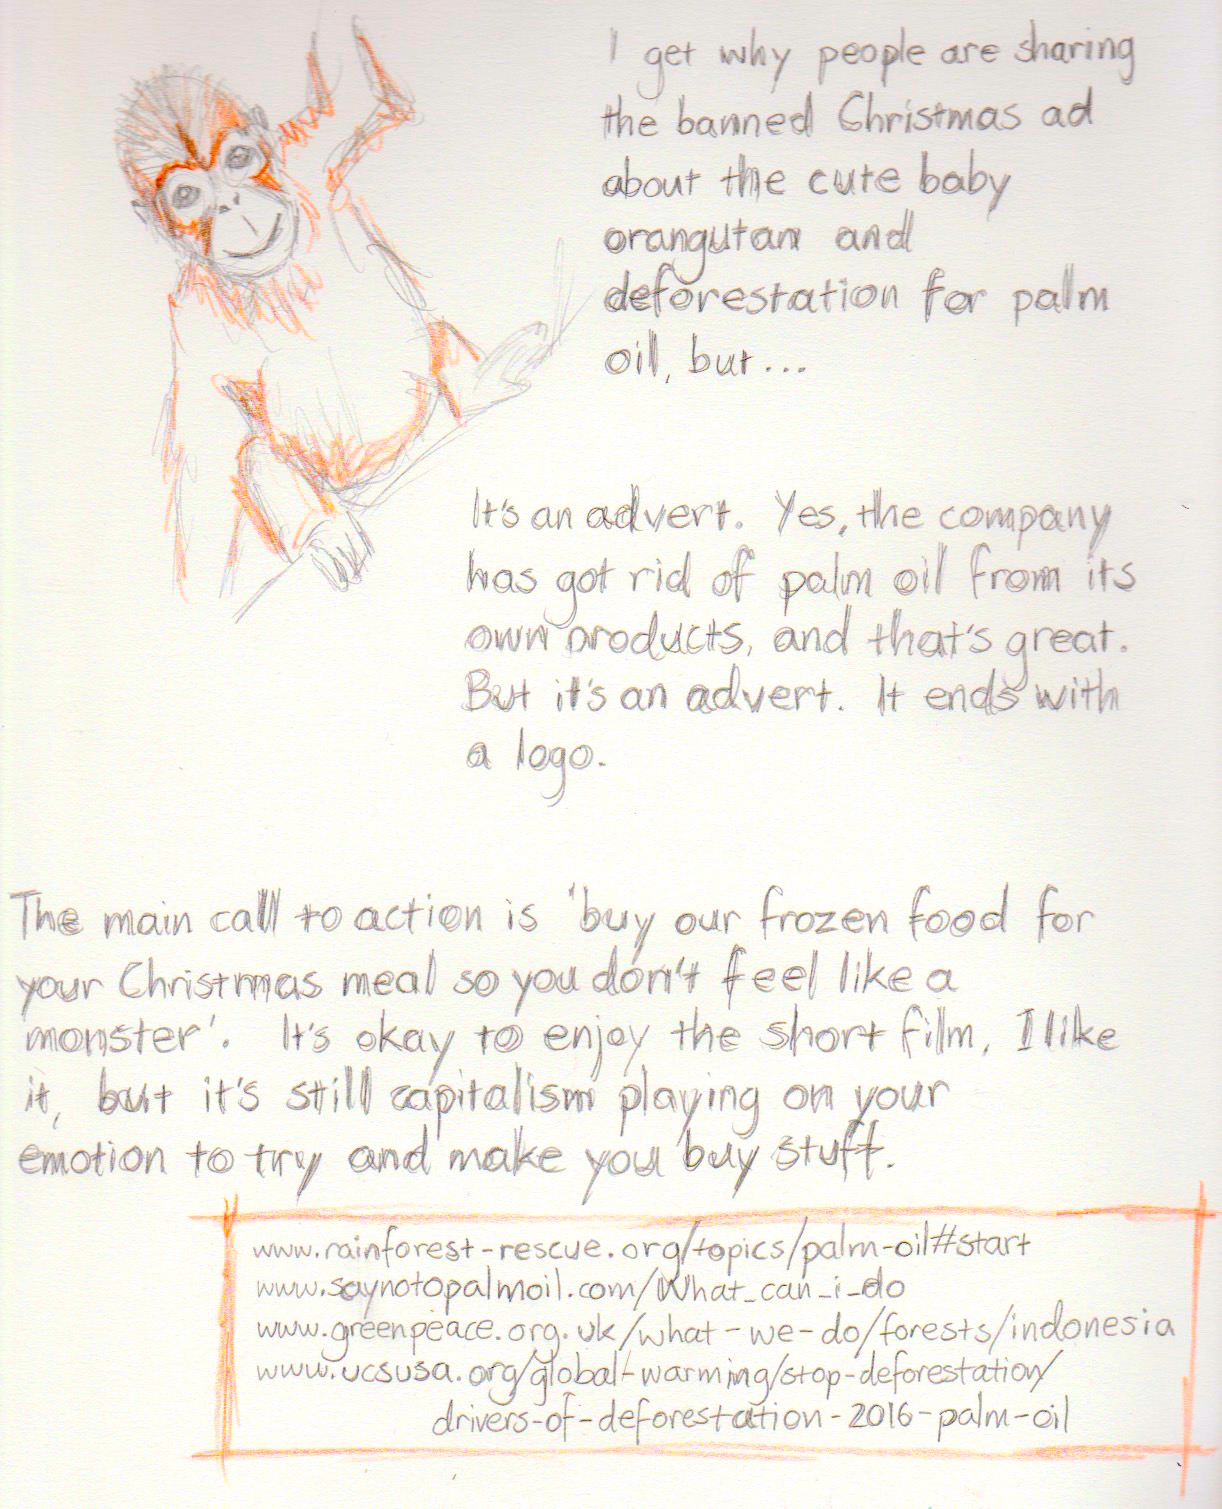 I get why people are sharing
the banned Christmas ad
about the cute baby
orangutan and
deforestation for palm
oil, but...
It's an advert. Yes, the company
has got rid of palm oil from its
own products, and that's great.
But it's an advert. It ends with
a logo.
The main call to action is 'buy our frozen food for
your Christmas meal so you don't feel like a
monster'. It's okay to enjoy the short film, I like
it, but it's still capitalism playing on your
emotion to try and make you buy stuff.
www.rainforest-rescue.org/topics/palm-oil#start
www.saynotopalmoil.com/What_can_i_do
www.greenpeace.org.uk/what-we-do/forests/indonesia
www.ucsusa.org/global-warming/stop-deforestation/
drivers-of-deforestation-2016-palm-oil